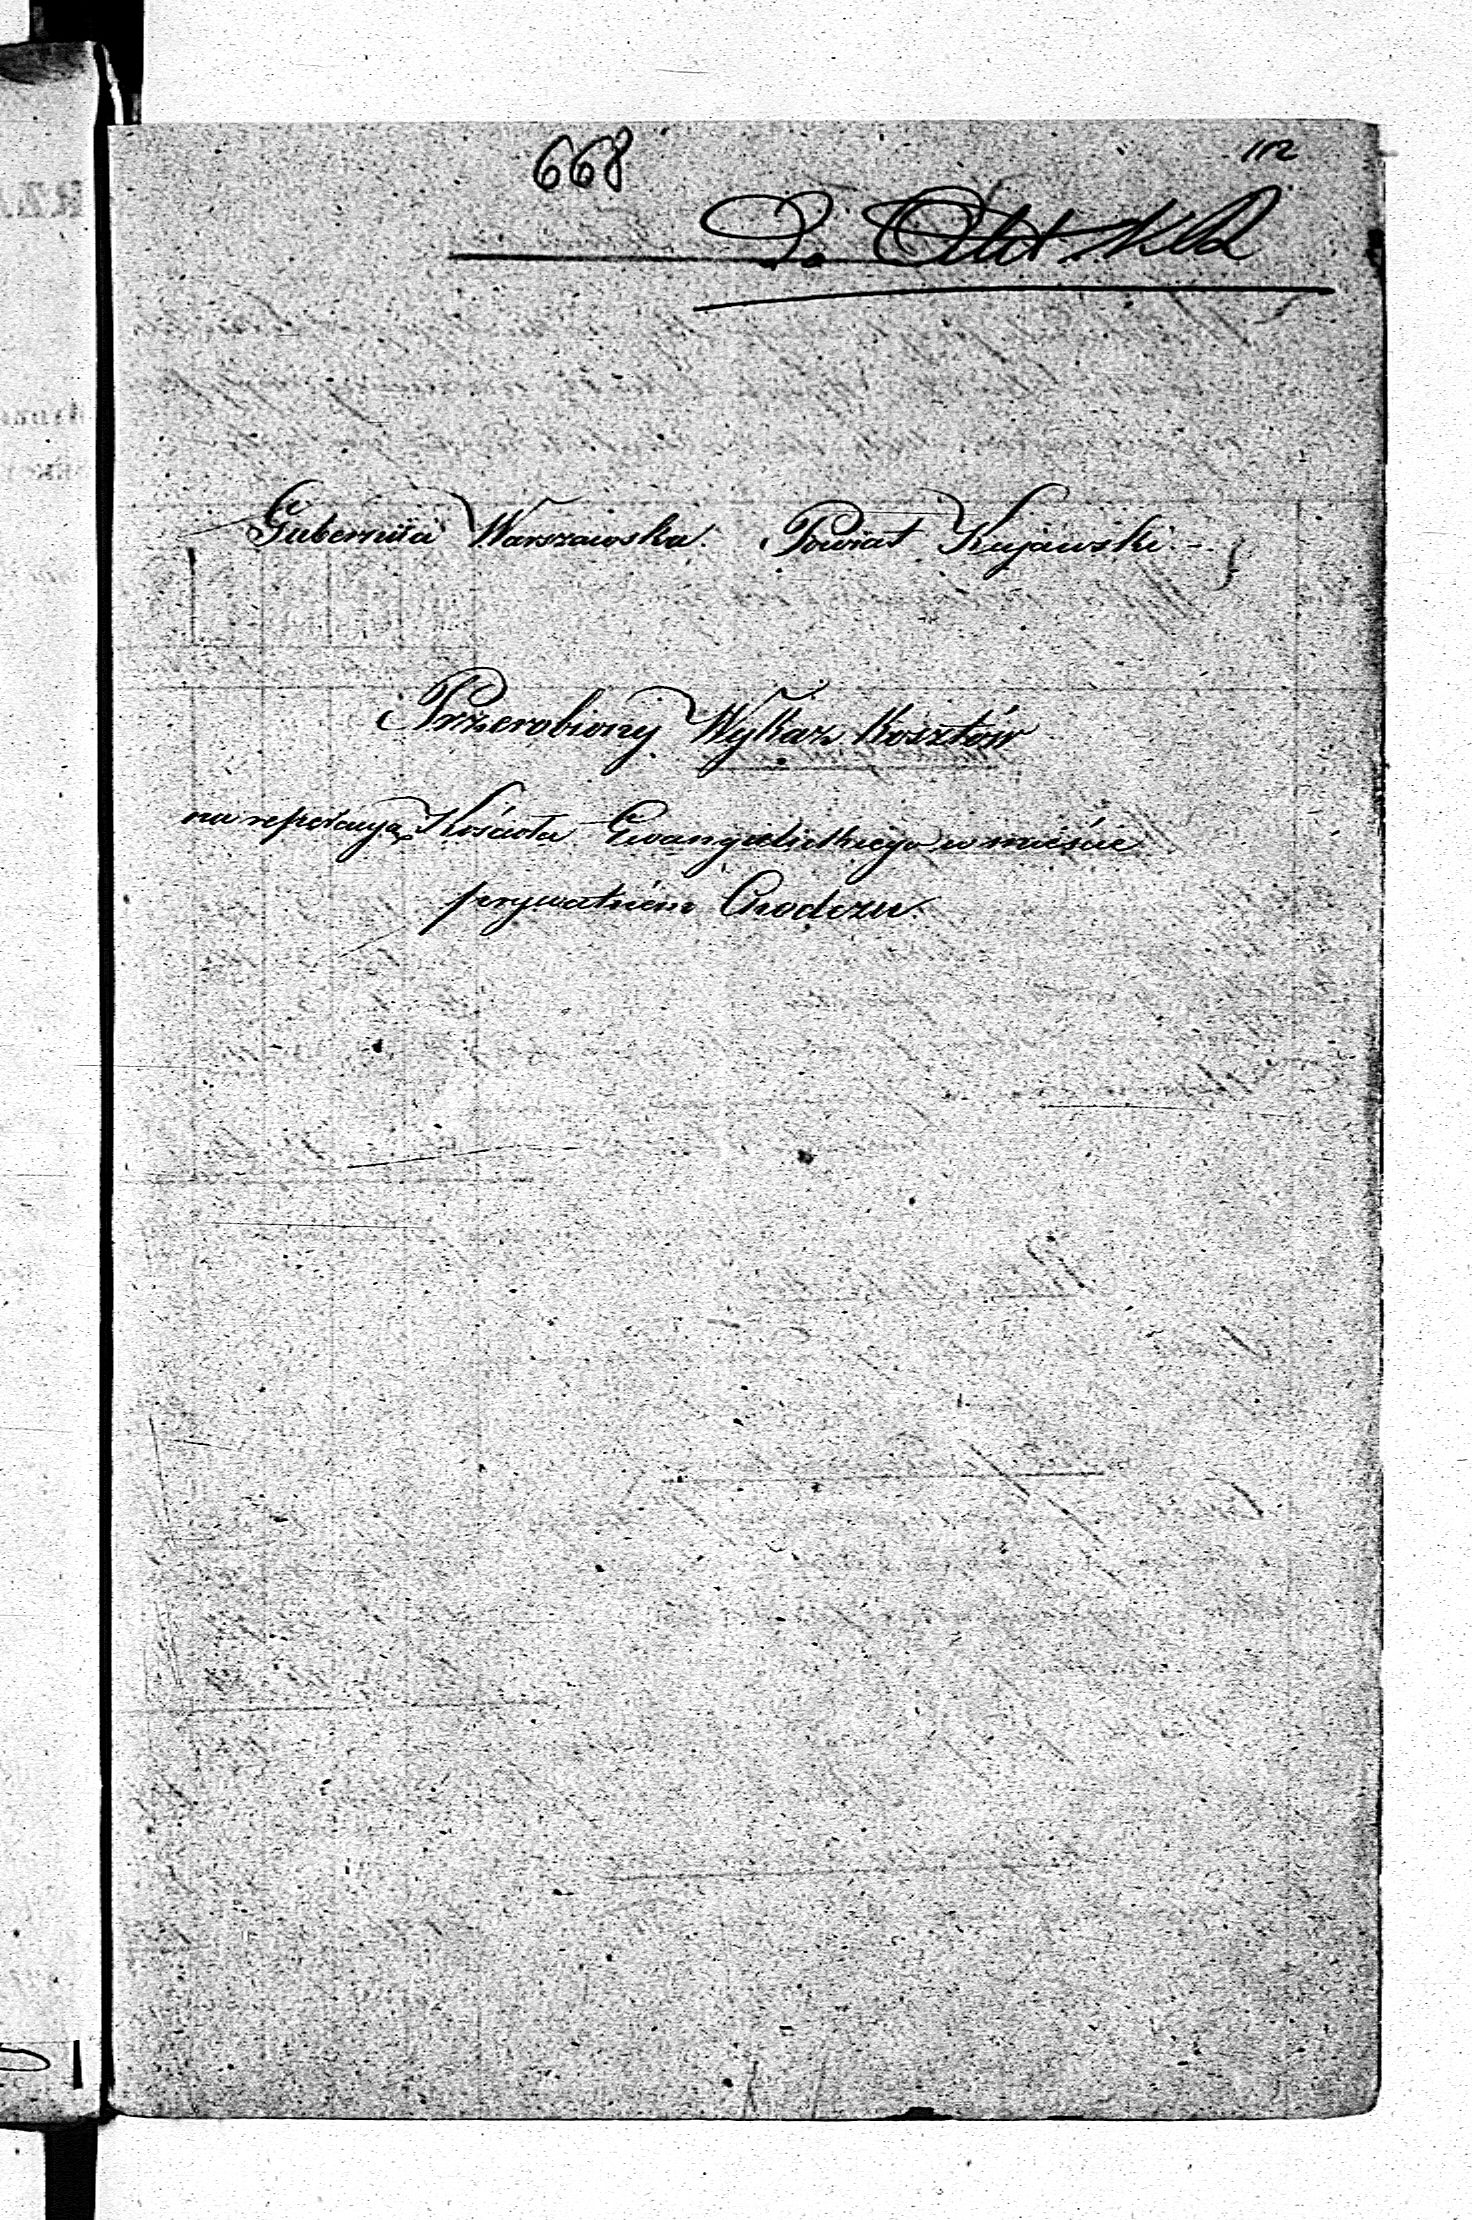 668
112
Gubernia Warszawska. Powiat Kujawski.
Przerobiony Wykaz Kosztów
na reperacyą Kościoła Ewangielickiego w mieście
prywatném Chodczu.